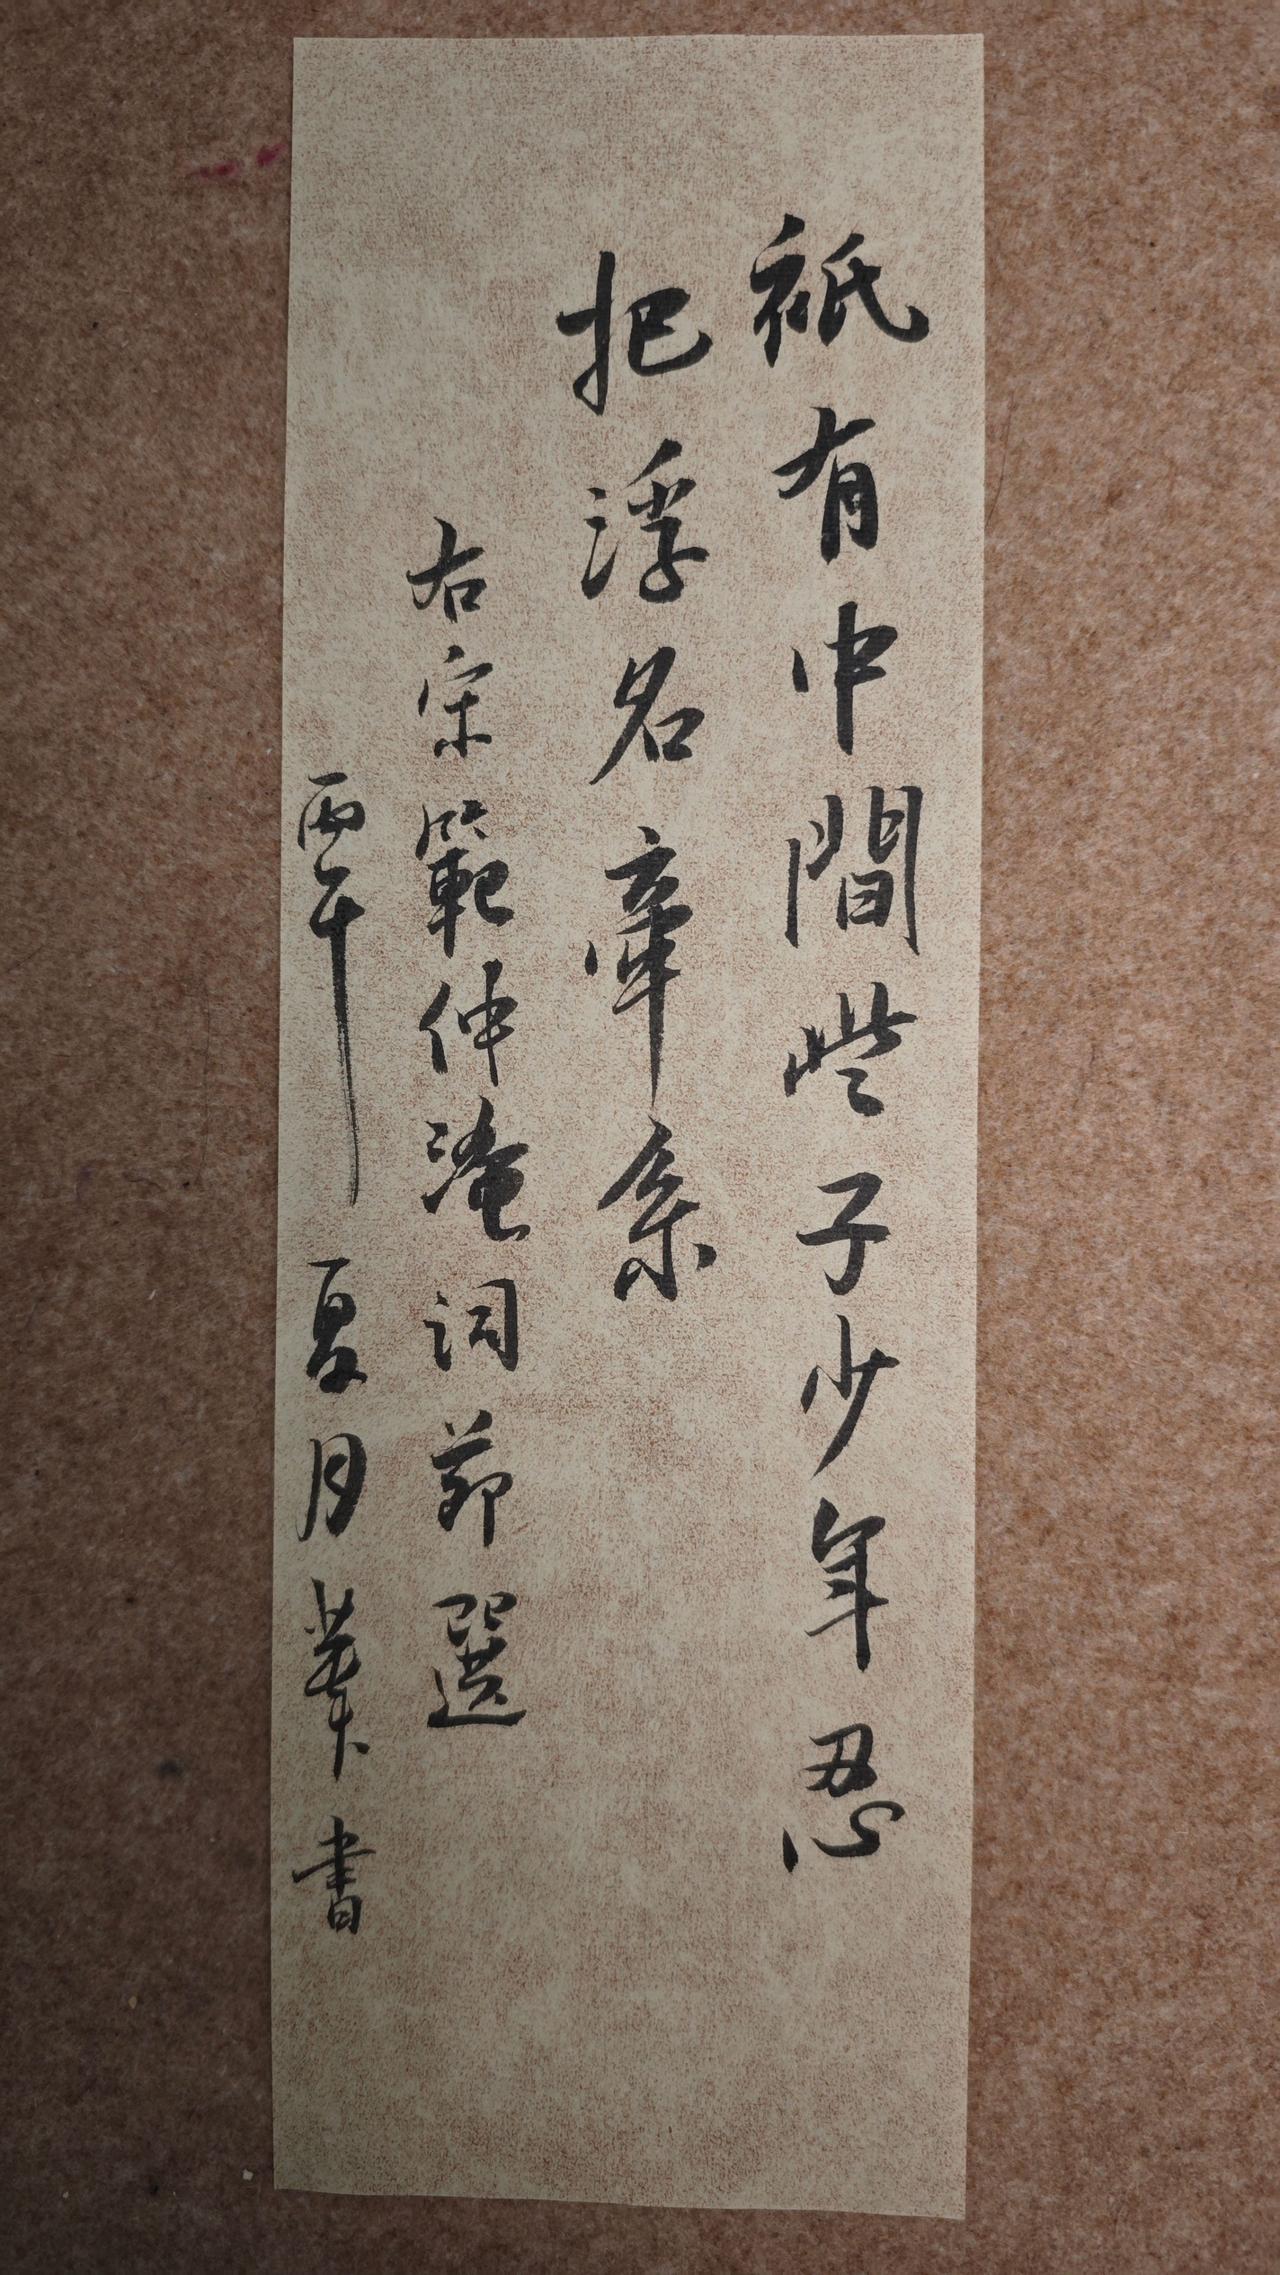 祇有中間些子少年忍
把浮名牽系
右宋範仲淹詞節選
丙午夏月業書